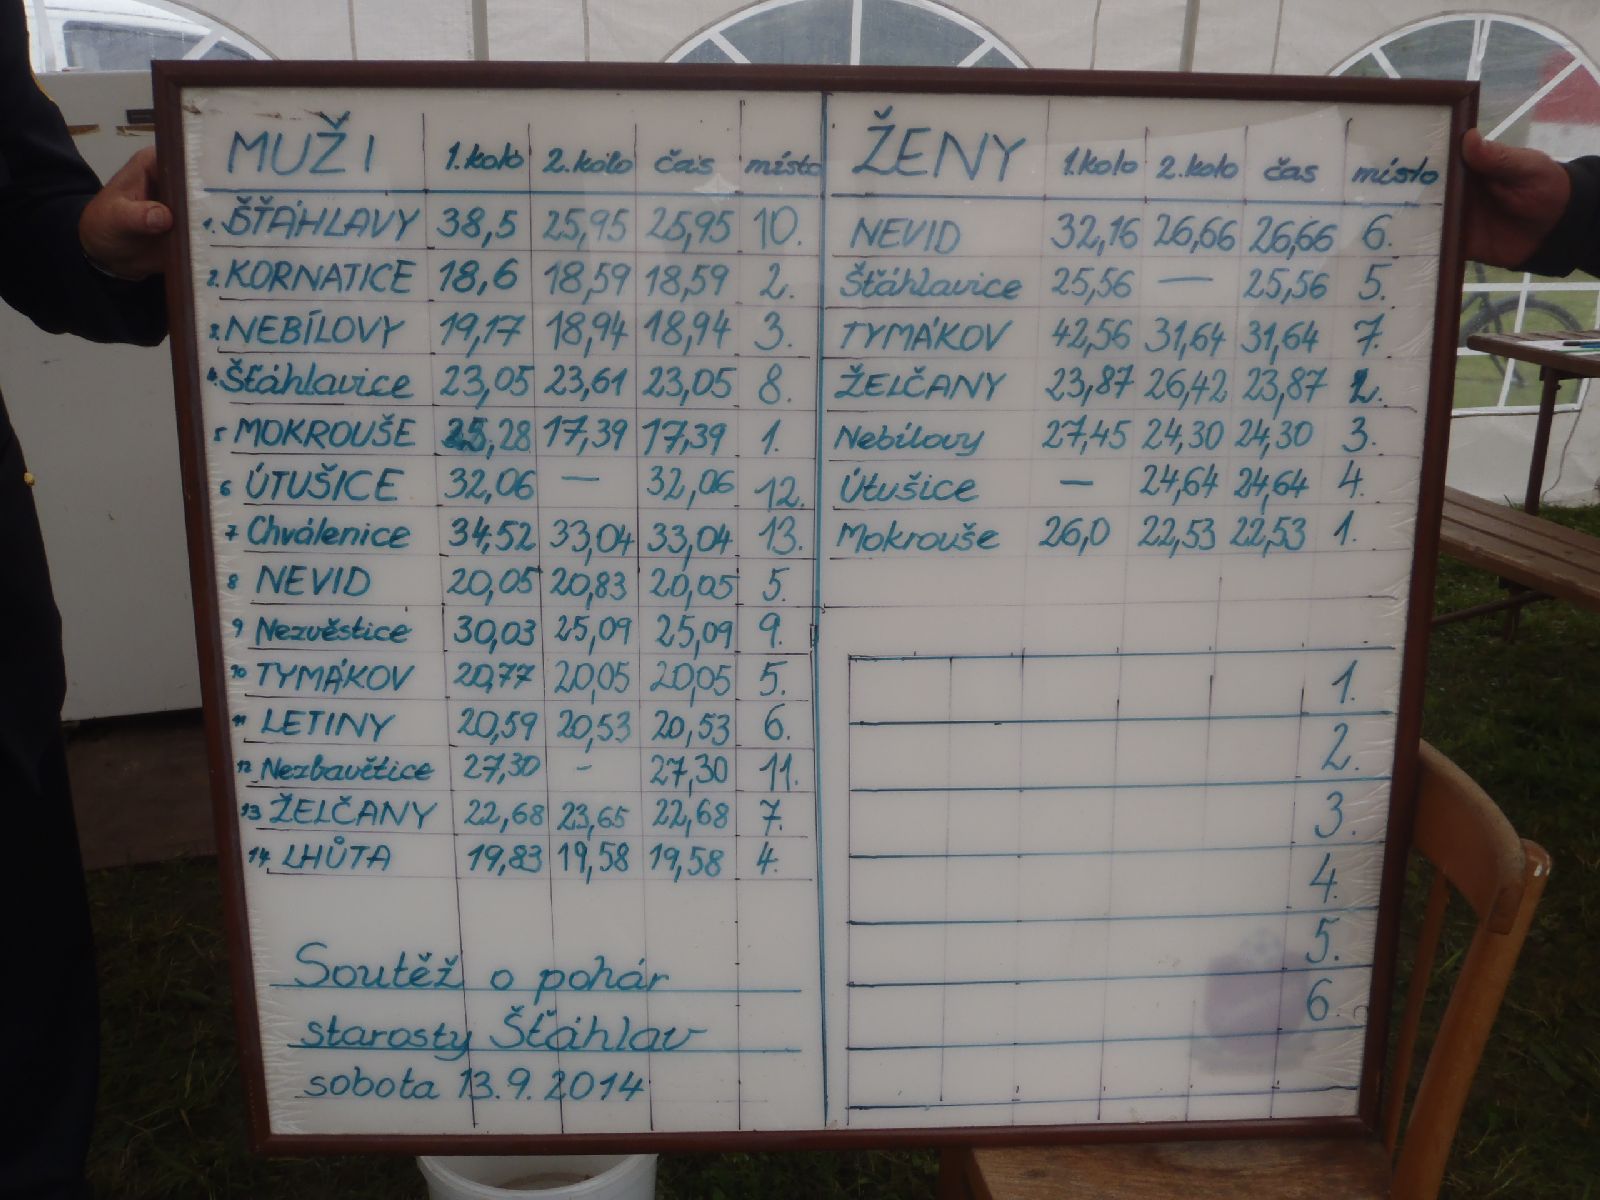 MUŽI 1.kolo 2.kolo čas místo
1. ŠŤÁHLAVY 38,5 25,95 25,95 10.
2. KORNATICE 18,6 18,59 18,59 2.
3. NEBÍLOVY 19,17 18,94 18,94 3.
4. Šťáhlavice 23,05 23,61 23,05 8.
5 MOKROUŠE 25,28 17,39 17,39 1.
6 ÚTUŠICE 32,06 — 32,06 12.
7 Chválenice 34,52 33,04 33,04 13.
8 NEVID 20,05 20,83 20,05 5.
9 Nezvěstice 30,03 25,09 25,09 9.
10 TYMÁKOV 20,77 20,05 20,05 5.
11 LETINY 20,59 20,53 20,53 6.
12 Nezbavětice 27,30 - 27,30 11.
13 ŽELČANY 22,68 23,65 22,68 7.
14. LHŮTA 19,83 19,58 19,58 4.
Soutěž o pohár
starosty Šťáhlav
sobota 13.9.2014
ŽENY 1.kolo 2.kolo čas místo
NEVID 32,16 26,66 26,66 6.
Šťáhlavice 25,56 — 25,56 5.
TYMÁKOV 42,56 31,64 31,64 7.
ŽELČANY 23,87 26,42 23,87 2.
Nebílovy 27,45 24,30 24,30 3.
Útušice — 24,64 24,64 4.
Mokrouše 26,0 22,53 22,53 1.
1.
2.
3.
4.
5.
6.